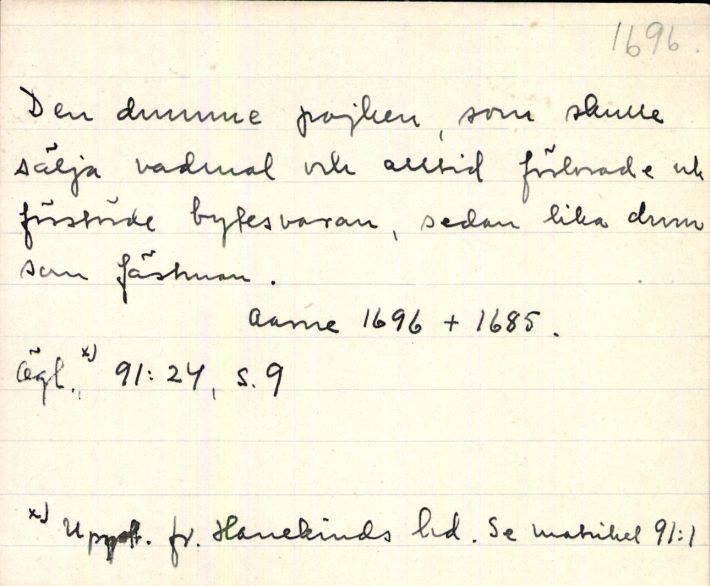 1696.
Den dumme pojken, som skulle
sälja vadmal och alltid förlorade och
förstörde bytesvaran, sedan lika dum
som fästman.
Aarne 1696 + 1685.
Ögl.,x) 91:24, s. 9
x) Uppt. fr. Hanekinds hd. Se matrikel 91:1